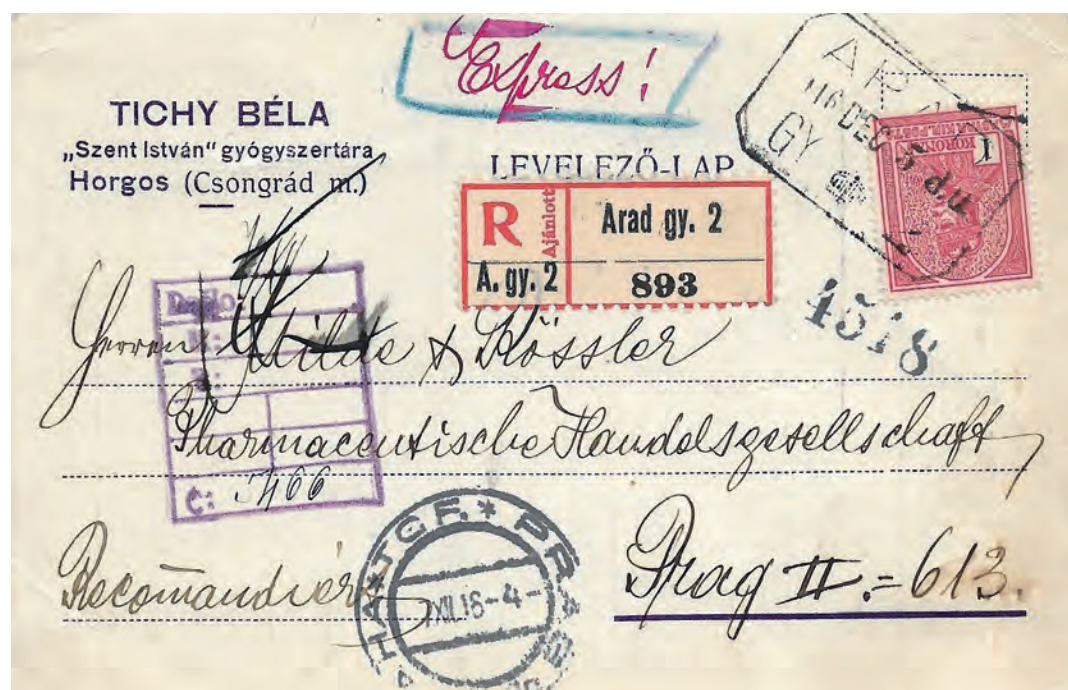 Express!
TICHY BÉLA
„Szent István" gyógyszertára
Horgos (Csongrád m.)
LEVELEZŐ-LAP
R Ajánlott Arad gy. 2
A. gy. 2 893
ARAD
916 DEC 5 d.u.
GY 2
1
KORONA
4518
Herren Wilde & Rössler
Pharmaceutische Handelsgesellschaft
Č: 5466
Recomandiert
Prag II.=613.
XII.16-4-